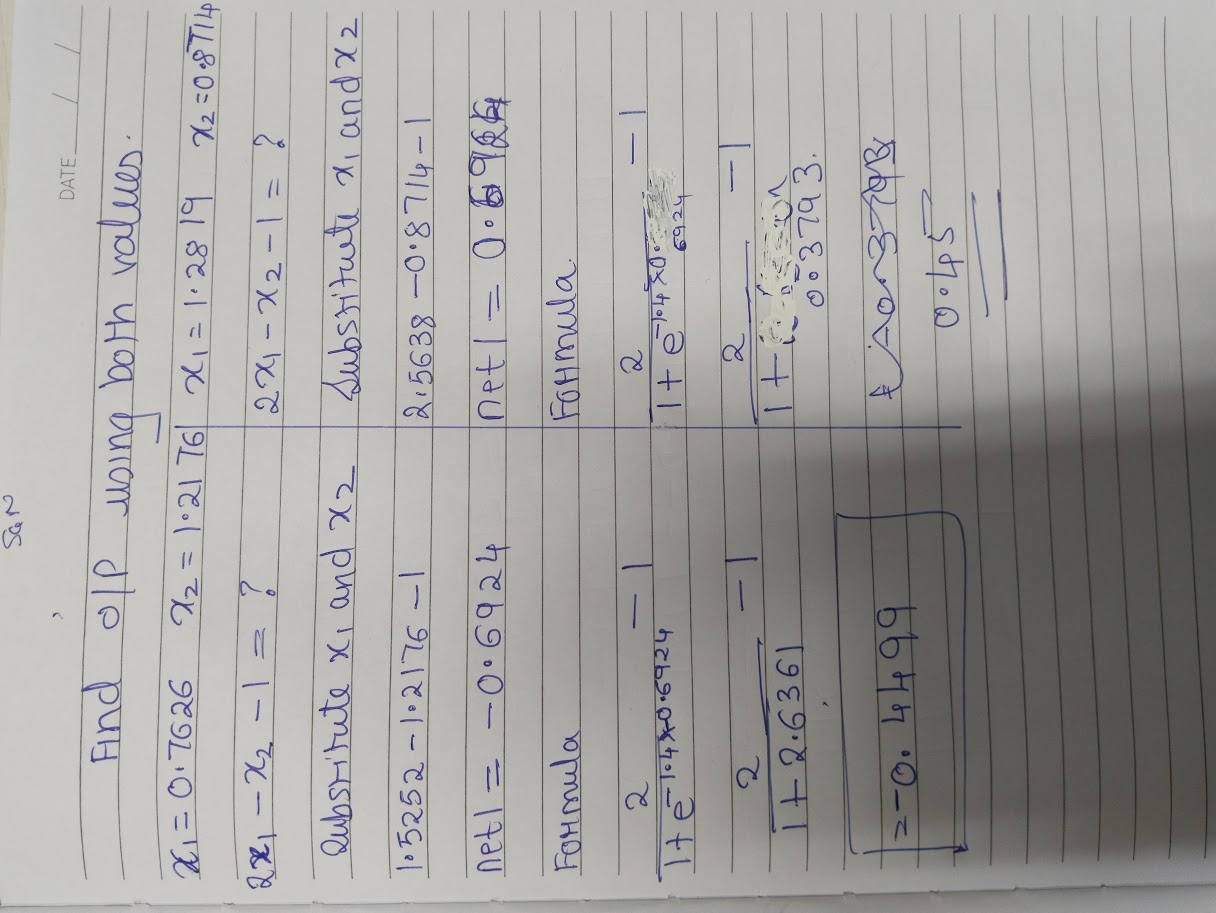 SGN
DATE / /
Find O/P using both values.
x₁ = 0.7626 x₂ = 1.2176
2x₁ - x₂ - 1 = ?
Substitute x₁ and x₂
1.5252 - 1.2176 - 1
net1 = -0.6924
Formula
2 / 1 + e^-1.4x0.6924 - 1
2 / 1 + 2.6361 - 1
= -0.4499
x₁ = 1.2819 x₂ = 0.8714
2x₁ - x₂ - 1 = ?
Substitute x₁ and x₂
2.5638 - 0.8714 - 1
net1 = 0.6924
Formula
2 / 1 + e^-1.4x0.6924 - 1
2 / 1 + 0.3793. - 1
0.45